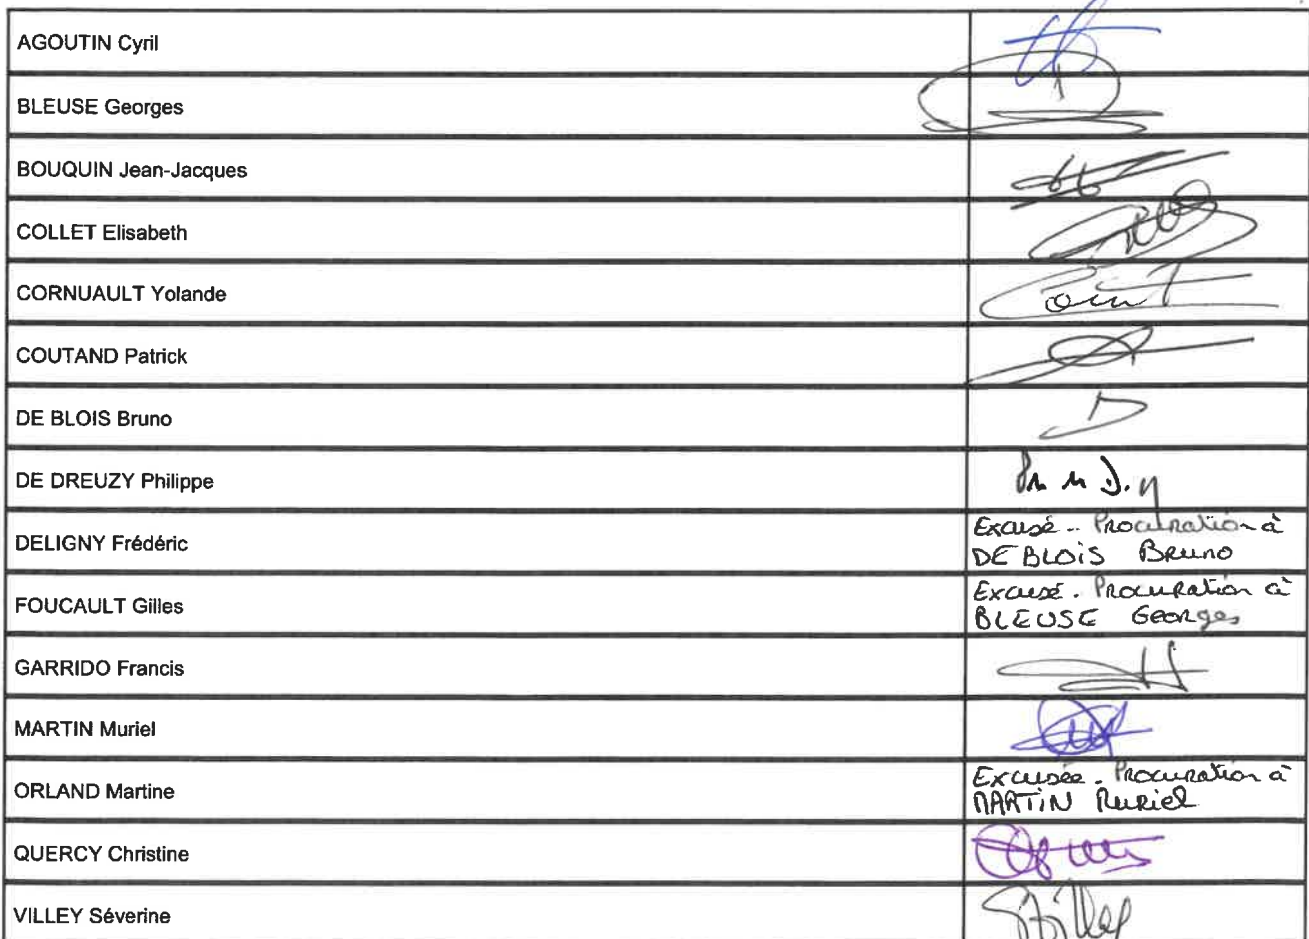 AGOUTIN Cyril
BLEUSE Georges
BOUQUIN Jean-Jacques
COLLET Elisabeth
CORNUAULT Yolande
COUTAND Patrick
DE BLOIS Bruno
DE DREUZY Philippe
DELIGNY Frédéric
Excusé - Procuration à
DE BLOIS Bruno
FOUCAULT Gilles
Excusé - Procuration à
BLEUSE Georges
GARRIDO Francis
MARTIN Muriel
ORLAND Martine
Excusée - Procuration à
MARTIN Muriel
QUERCY Christine
VILLEY Séverine